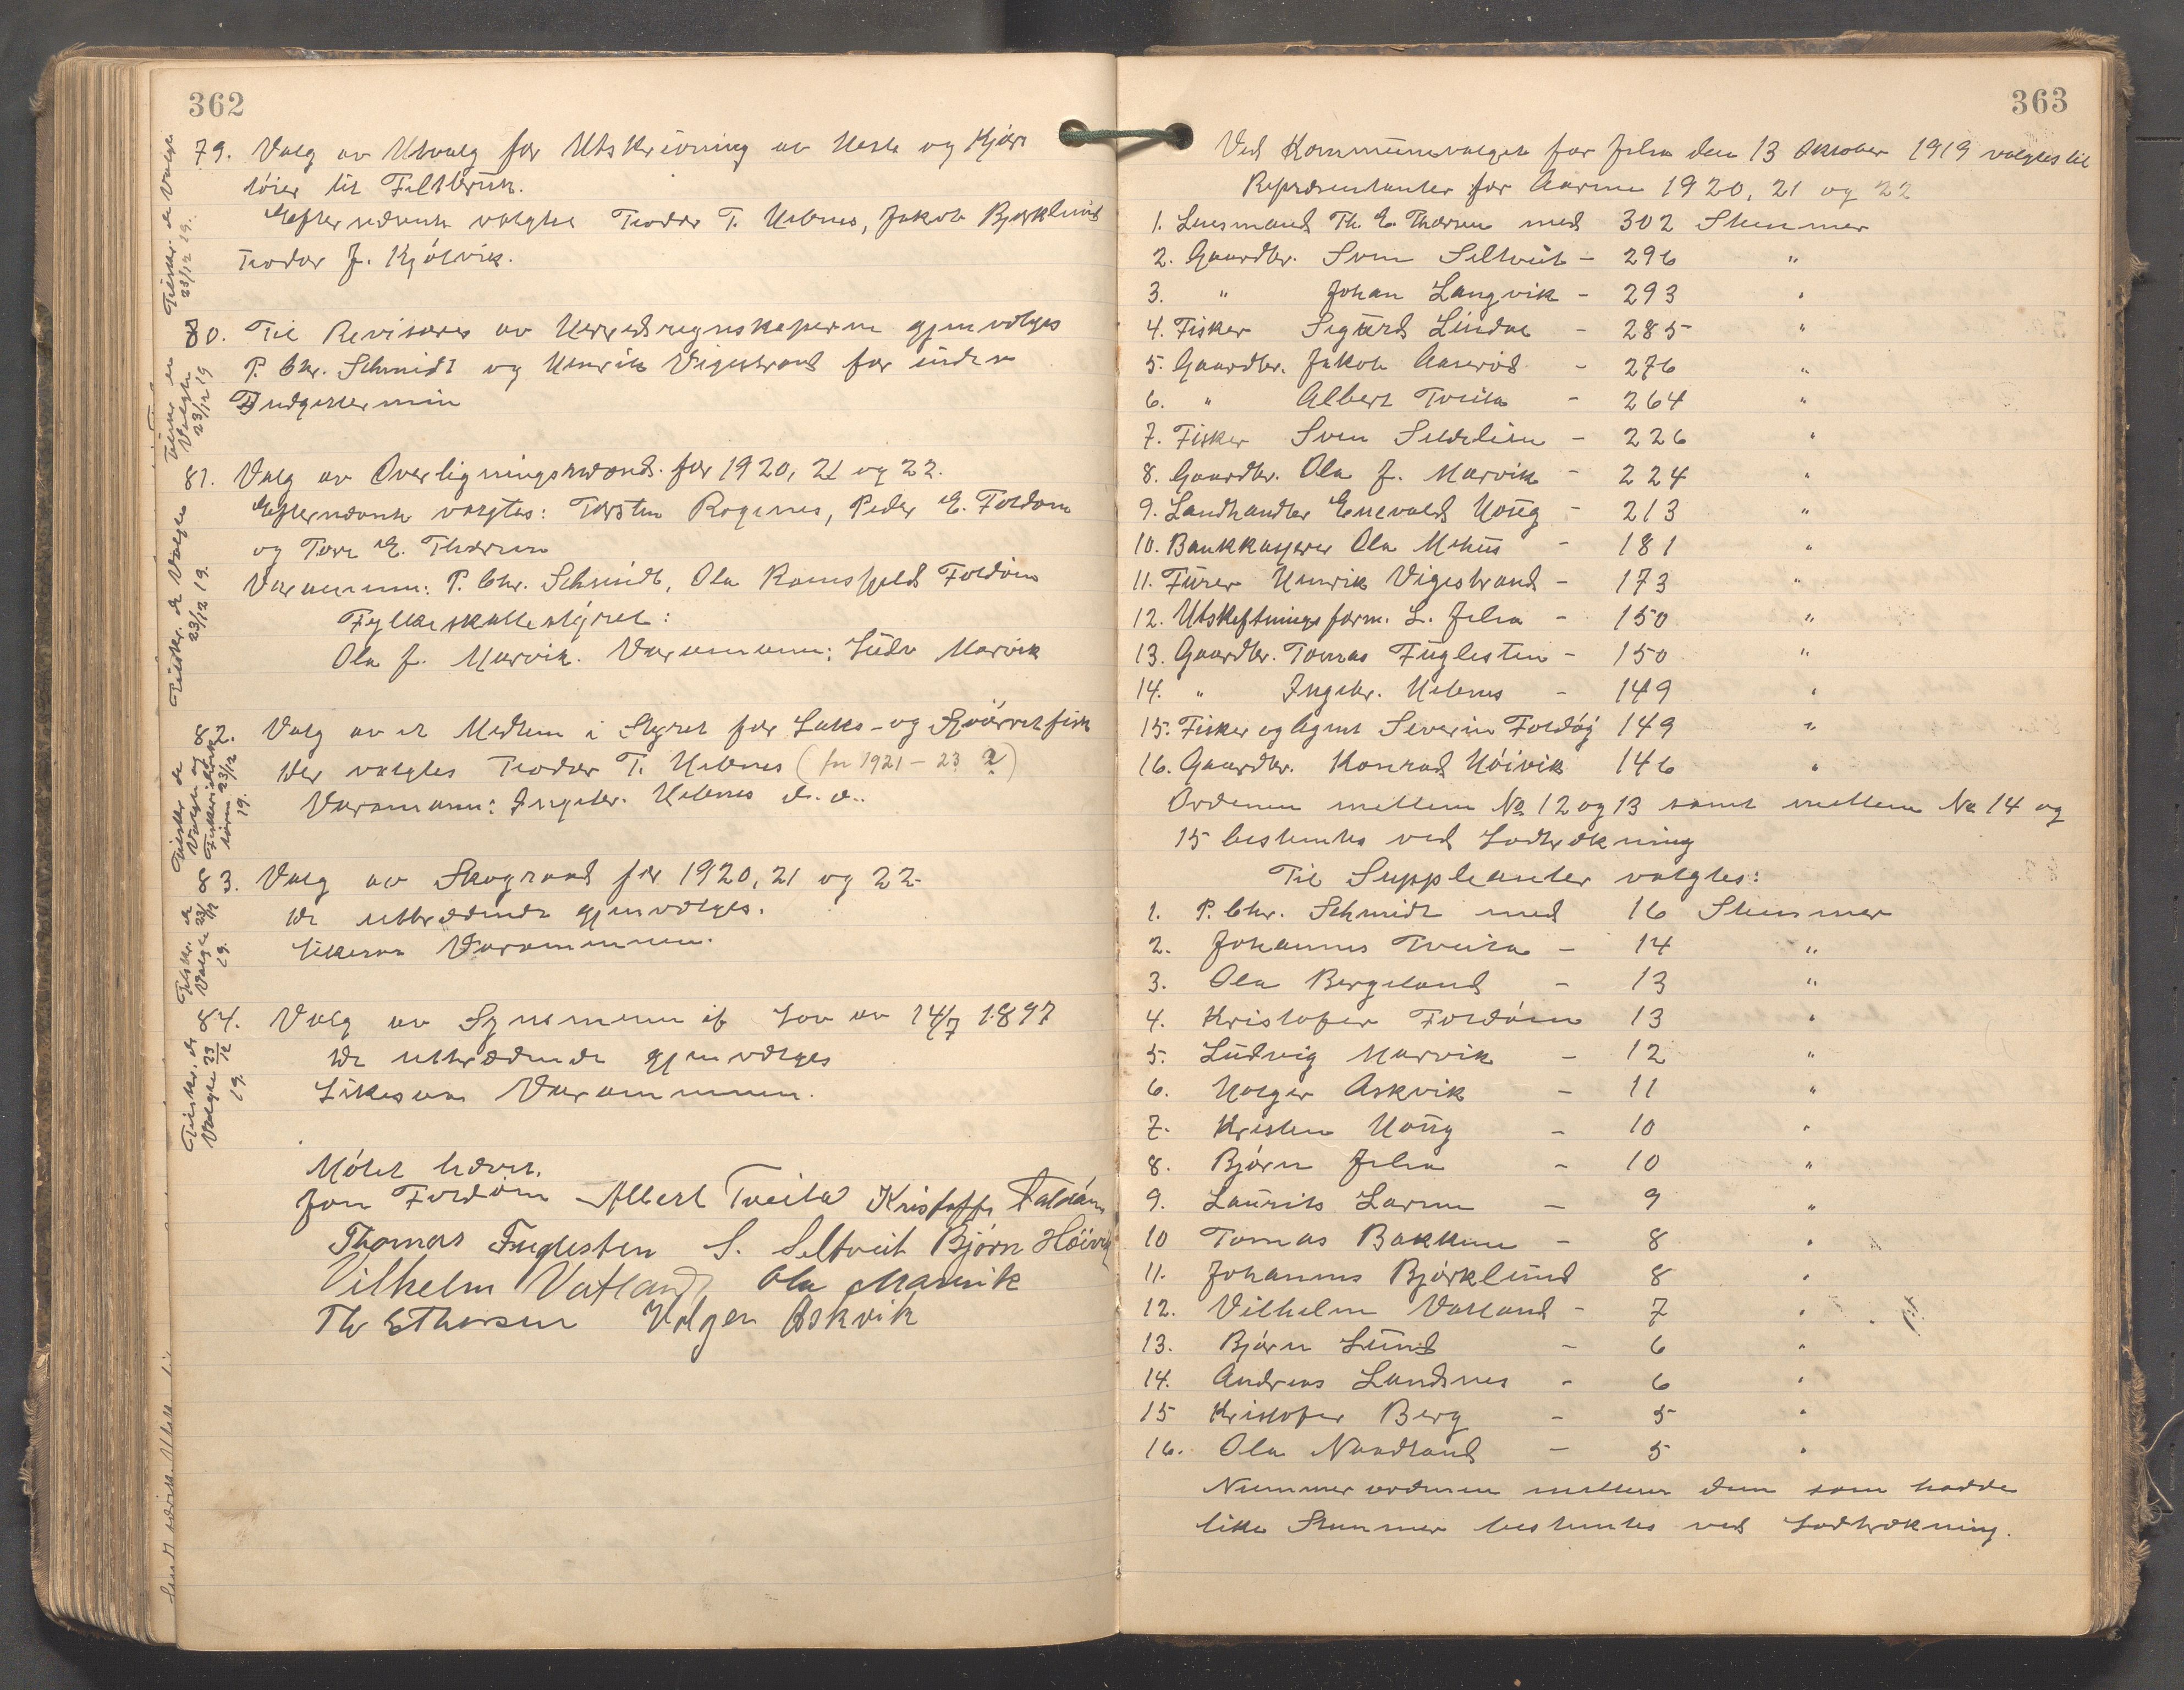 362
79. Valg av Utvalg for Utskrivning av Heste og Kjøre
tøier til Feltbruk.
Efternævnte valgtes Teodor T. Hebnes, Jakob Bjørklund
Teodor J. Kjølvik.
Tilskr. de Valgte
23/12 19.
80. Til Revisorer av Herredsregnskaperne gjenvælges
P. Chr. Schmidt og Henrik Vigestrand for
Budgettermin
Valgte
23/12 19
81. Valg av Overligningsmænd for 1920, 21 og 22.
Efternævnte valgtes: Torsten Rognes, Peder E. Foldøen
og Tore E. Thorsen
Varamenn: P. Chr. Schmidt, Ola Ramsfjeld Foldøen
Fylkesskattestyret:
Ola J. Marvik. Varamann: Ludv Marvik
Tilskr. de Valgte
23/12 19.
82. Valg av et Medlem i Styret for Laks- og Sjøørretfisk
Der valgtes Teodor T. Hebnes (for 1921-23 ?)
Varamann: Ingebr. Hebnes d.e..
Tilskr. de
Valgte og
23/12
19.
83. Valg av Skograad for 1920, 21 og 22.
De uttrædende gjenvælges.
Likesaa Varamennene.
Tilskr. de
Valgte 23/12
19.
84. Valg av Synsmenn if Lov av 14/7 1897
De uttrædende gjenvælges
Likesaa Varamennene.
Tilskr. de
Valgte 23/12
19.
Møtet hævet.
Jon Foldøen Albert Tveita Kristoffer Foldøen
Thomas Fuglesten S. Seltveit Bjørn Høivik
Vilhelm Vatland Ola Marvik
Th E Thorsen Holger Askvik
363
Ved Kommunevalget for Jelsa den 13 Oktober 1919 valgtes til
Repræsentanter for Aarene 1920, 21 og 22
1. Lensmand Th. E. Thorsen med 302 Stemmer
2. Gaardbr. Sven Seltveit - 296 "
3. " Johan Langvik - 293 "
4. Fisker Sigurd Lindal - 285 "
5. Gaardbr. Jakob Aaserød - 276 "
6. " Albert Tveita - 264 "
7. Fisker Sven - 226 "
8. Gaardbr. Ola J. Marvik - 224 "
9. Landhandler Enevald Haug - 213 "
10. Bankkasserer Ola Mehus - 181 "
11. Furer Henrik Vigestrand - 173 "
12. Utskiftningsform. L. Jelsa - 150 "
13. Gaardbr. Tomas Fuglesten - 150 "
14. " Ingebr. Hebnes - 149 "
15. Fisker og Agent Severin Foldøy 149 "
16. Gaardbr. Konrad Høivik 146 "
Ordenen mellem No 12 og 13 samt mellem No 14 og
15 bestemtes ved Lodtrækning
Til Suppleanter valgtes:
1. P. Chr. Schmidt med 16 Stemmer
2. Johannes Tveita - 14 "
3. Ola Bergeland - 13 "
4. Kristofer Foldøen 13 "
5. Ludvig Marvik - 12 "
6. Holger Askvik - 11 "
7. Kristen Haug - 10 "
8. Bjørn Jelsa - 10 "
9. Laurits Larsen - 9 "
10 Tomas Bakken - 8 "
11. Johannes Bjørklund 8 "
12. Vilhelm Vatland - 7 "
13. Bjørn Lund - 6 "
14. Andreas Landsnes - 6 "
15 Kristofer Berg - 5 "
16. Ola Naadland - 5 "
Nummerordenen mellem dem som hadde
like Stemmer bestemtes ved Lodtrækning.